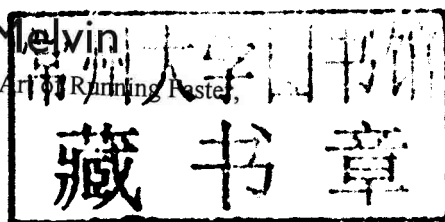 Melvin
Art of Running Faster,
常州大学图书馆
藏书章